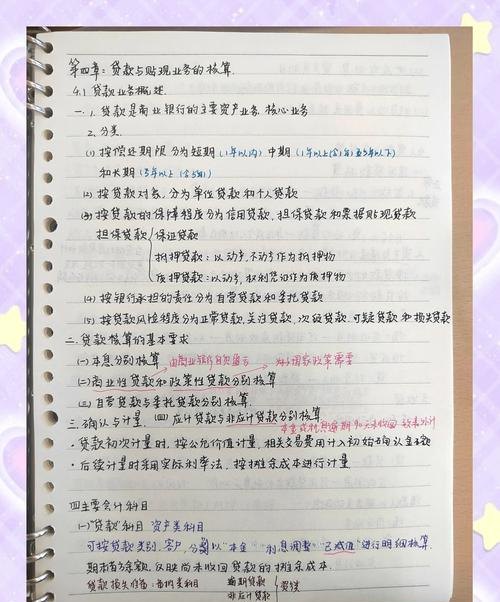 第四章：贷款与贴现业务的核算
4.1 贷款业务概述
一. 1. 贷款是商业银行的主要资产业务. 核心业务
2. 分类
(1) 按偿还期限分为短期 (1年以内) 中期 (1年以上(含1年)至5年以下)
和长期 (5年以上(含5年)
(2) 按贷款对象, 分为单位贷款和个人贷款
(3) 按贷款的保障程度分为信用贷款, 担保贷款和票据贴现贷款
担保贷款 { 保证贷款
抵押贷款: 以动产, 不动产作为抵押物
质押贷款: 以动产, 权利凭证作为质押物
(4) 按银行承担的责任分为自营贷款和委托贷款
(5) 按贷款风险程度分为正常贷款, 关注贷款, 次级贷款, 可疑贷款和损失贷款
二. 贷款核算的基本要求
(一) 本息分别核算 由商业银行自负盈亏 为了国家政策需要
(二) 商业性贷款和政策性贷款分别核算
(三) 自营贷款与委托贷款分别核算
三. 确认与计量. (四) 应计贷款与非应计贷款分别核算
本金或利息逾期90天未收回
· 贷款初次计量时, 按公允价值计量, 相关交易费用计入初始确认金额
· 后续计量时采用实际利率法, 按摊余成本进行计量
四主要会计科目
(一) "贷款"科目 资产类科目
可按贷款类别, 客户, 分别以"本金" "利息调整" "已减值"进行明细核算.
期末借方余额, 反映尚未收回贷款的摊余成本.
贷款损失准备: 备抵类科目 逾期贷款
非应计贷款